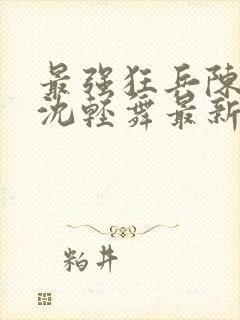 最强狂兵陈
沈轻舞最新
粕井